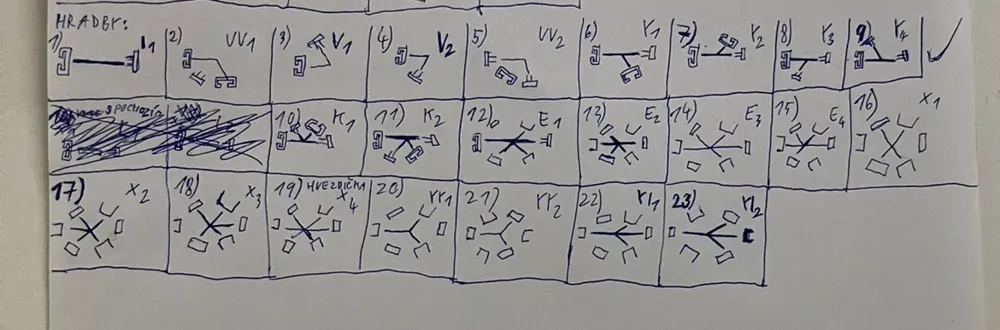 HRADBY:
1) I1 2) VV1 3) V1 4) V2 5) VV2 6) Y1 7) Y2 8) Y3 9) Y4
10) K1 11) K2 12) E1 13) E2 14) E3 15) E4 16) X1
17) X2 18) X3 19) HVEZDIČKA X4 20) YY1 21) YY2 22) YI1 23) YI2